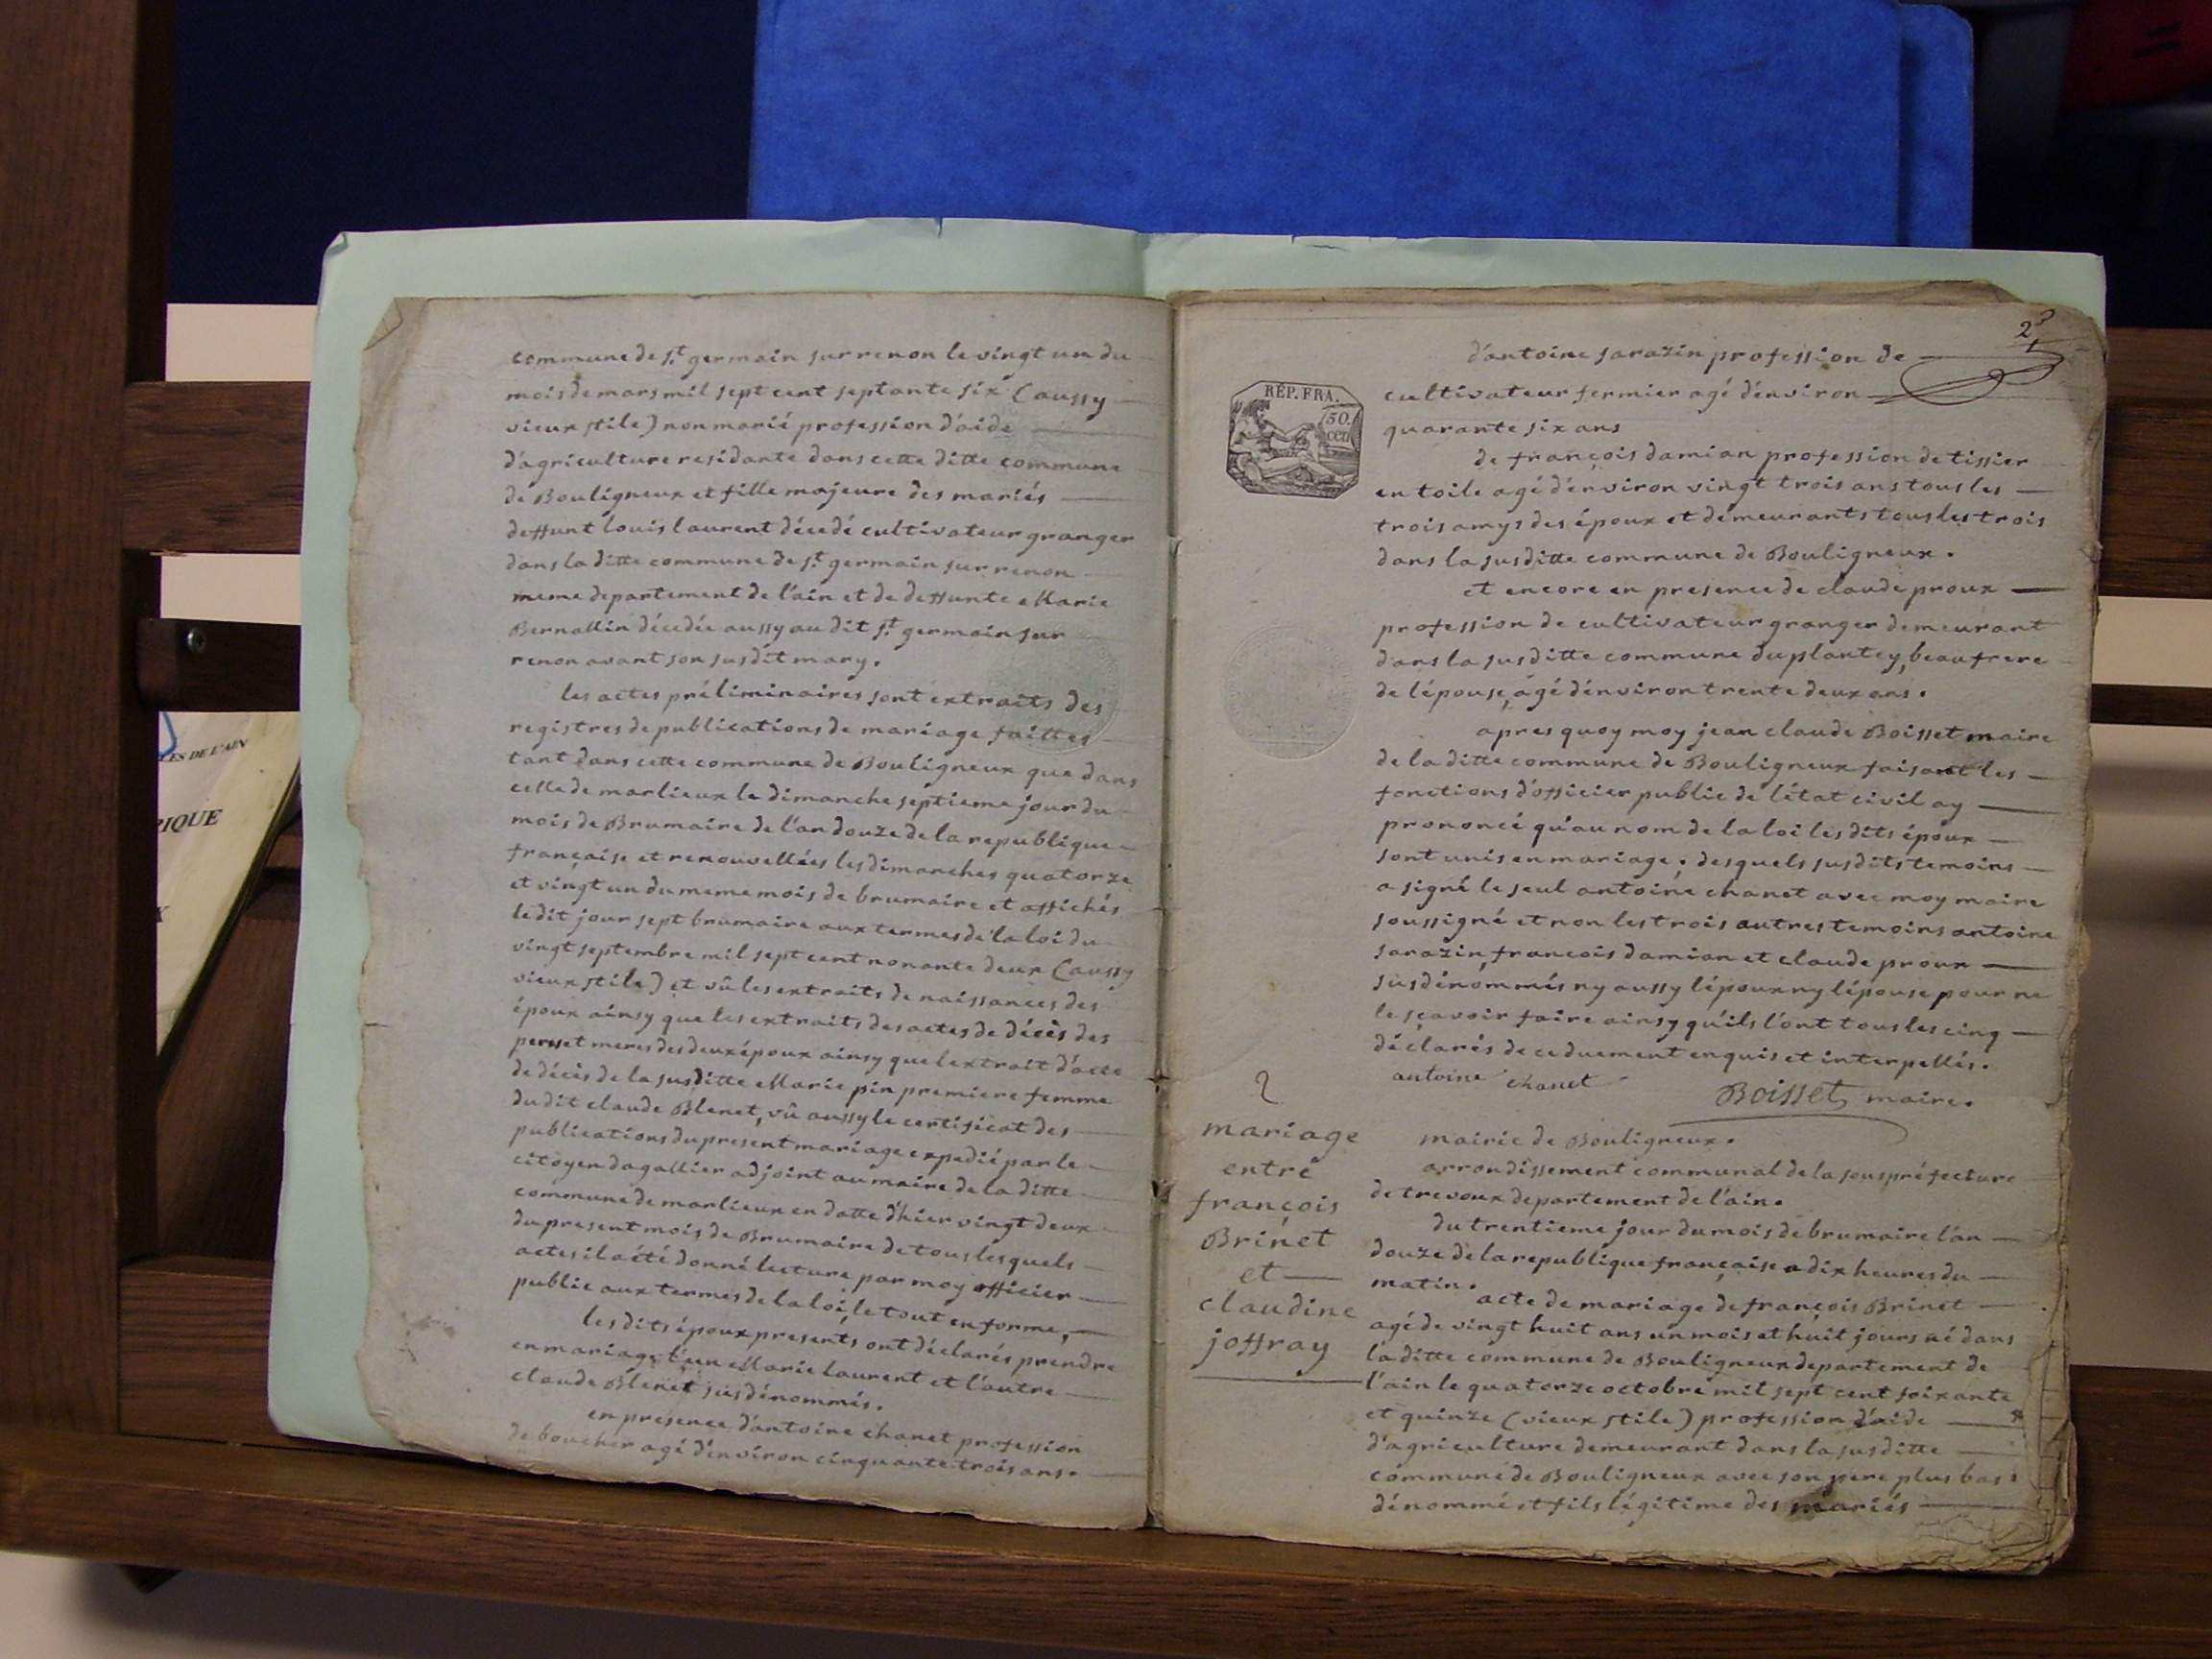 commune de s.t germain sur renon le vingt un du
mois de mars mil sept cent septante six (aussy
vieux stile) non marié profession d'aide
d'agriculture residante dans cette ditte commune
de Bouligneux et fille majeure des mariés
deffunt louis laurent décedé cultivateur granger
dans la ditte commune de s.t germain sur renon
meme departement de l'ain et de deffunte Marie
Bernallin décedée aussy au dit s.t germain sur
renon avant son susdit mary.
les actes préliminaires sont extraits des
registres de publications de mariage faittes
tant dans cette commune de Bouligneux que dans
celle de marlieux le dimanche septieme jour du
mois de Brumaire de l'an douze de la republique
française et renouvellées les dimanches quatorze
et vingt un du meme mois de brumaire et affichés
le dit jour sept brumaire aux termes de la loi du
vingt septembre mil sept cent nonante deux (aussy
vieux stile) et vû les extraits de naissances des
époux ainsy que les extraits des actes de décès des
peres et meres des deux époux ainsy que l'extrait d'acte
de décès de la susditte Marie pin premiere femme
du dit claude Blenet, vû aussy le certificat des
publications du present mariage expedié par le
citoyen dagallier adjoint au maire de la ditte
commune de marlieux en datte d'hier vingt deux
du present mois de Brumaire de tous lesquels
actes il a été donné lecture par moy officier
public aux termes de la loi, le tout en forme,
les dits époux presents ont déclarés prendre
en mariage l'un Marie laurent et l'autre
claude Blenet susdénommés.
en presence d'antoine chanet profession
de boucher agé d'environ cinquante trois ans.
2
d'antoine sarazin profession de
RÉP. FRA.
50.
cen
cultivateur fermier agé d'environ
quarante six ans
de françois damian profession de tissier
en toile agé d'environ vingt trois ans tous les
trois amys des époux et demeurants tous les trois
dans la susditte commune de Bouligneux.
et encore en presence de claude proux
profession de cultivateur granger demeurant
dans la susditte commune du plantey, beaufrere
de l'épouse, agé d'environ trente deux ans.
apres quoy moy jean claude Boisset maire
de la ditte commune de Bouligneux faisant les
fonctions d'officier public de l'état civil ay
prononcé qu'au nom de la loi les dits époux
sont unis en mariage; desquels susdits temoins
a signé le seul antoine chanet avec moy maire
soussigné et non les trois autres temoins antoine
sarazin, francois damian et claude proux
susdénommés ny aussy l'époux ny l'épouse pour ne
le sçavoir faire ainsy qu'ils l'ont tous les cinq
déclarés de ce duement enquis et interpellés.
antoine chanet
Boisset maire.
2
mariage
entre
françois
Brinet
et
claudine
joffray
mairie de Bouligneux.
arrondissement communal de la souspréfecture
de trevoux departement de l'ain.
du trentieme jour du mois de brumaire l'an
douze de la republique française a dix heures du
matin.
acte de mariage de françois Brinet
agé de vingt huit ans un mois et huit jours né dans
la ditte commune de Bouligneux departement de
l'ain le quatorze octobre mil sept cent soixante
et quinze (vieux stile) profession d'aide
d'agriculture demeurant dans la susditte
commune de Bouligneux avec son pere plus bas
dénommé et fils légitime des mariés
ES DE L'AIN
RIQUE
X